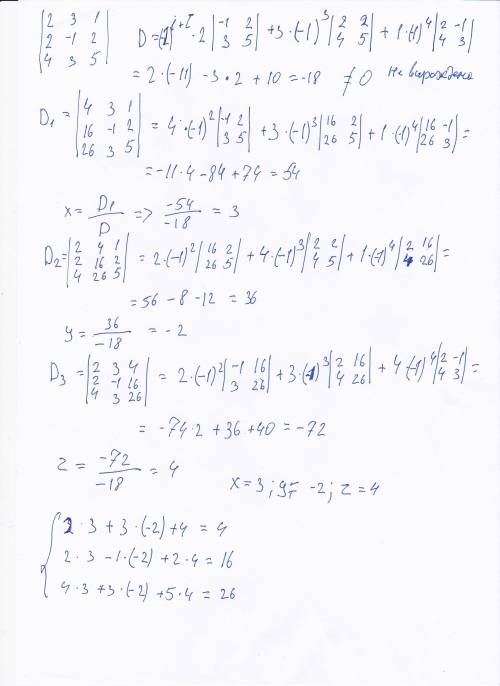 |2 3 1; 2 -1 2; 4 3 5| D = (-1)^{i+i} · 2 |-1 2; 3 5| + 3 · (-1)^3 |2 2; 4 5| + 1 · (-1)^4 |2 -1; 4 3|
= 2 · (-11) - 3 · 2 + 10 = -18 ≠ 0 Не вырождено
D₁ = |4 3 1; 16 -1 2; 26 3 5| = 4 · (-1)^2 |-1 2; 3 5| + 3 · (-1)^3 |16 2; 26 5| + 1 · (-1)^4 |16 -1; 26 3| =
= -11 · 4 - 84 + 74 = 54
x = D₁/D => -54/-18 = 3
D₂ = |2 4 1; 2 16 2; 4 26 5| = 2 · (-1)^2 |16 2; 26 5| + 4 · (-1)^3 |2 2; 4 5| + 1 · (-1)^4 |2 16; 4 26| =
= 56 - 8 - 12 = 36
y = 36/-18 = -2
D₃ = |2 3 4; 2 -1 16; 4 3 26| = 2 · (-1)^2 |-1 16; 3 26| + 3 · (-1)^3 |2 16; 4 26| + 4 · (-1)^4 |2 -1; 4 3| =
= -74 · 2 + 36 + 40 = -72
z = -72/-18 = 4
x = 3 ; y = -2 ; z = 4
{ 2 · 3 + 3 · (-2) + 4 = 4
2 · 3 - 1 · (-2) + 2 · 4 = 16
4 · 3 + 3 · (-2) + 5 · 4 = 26